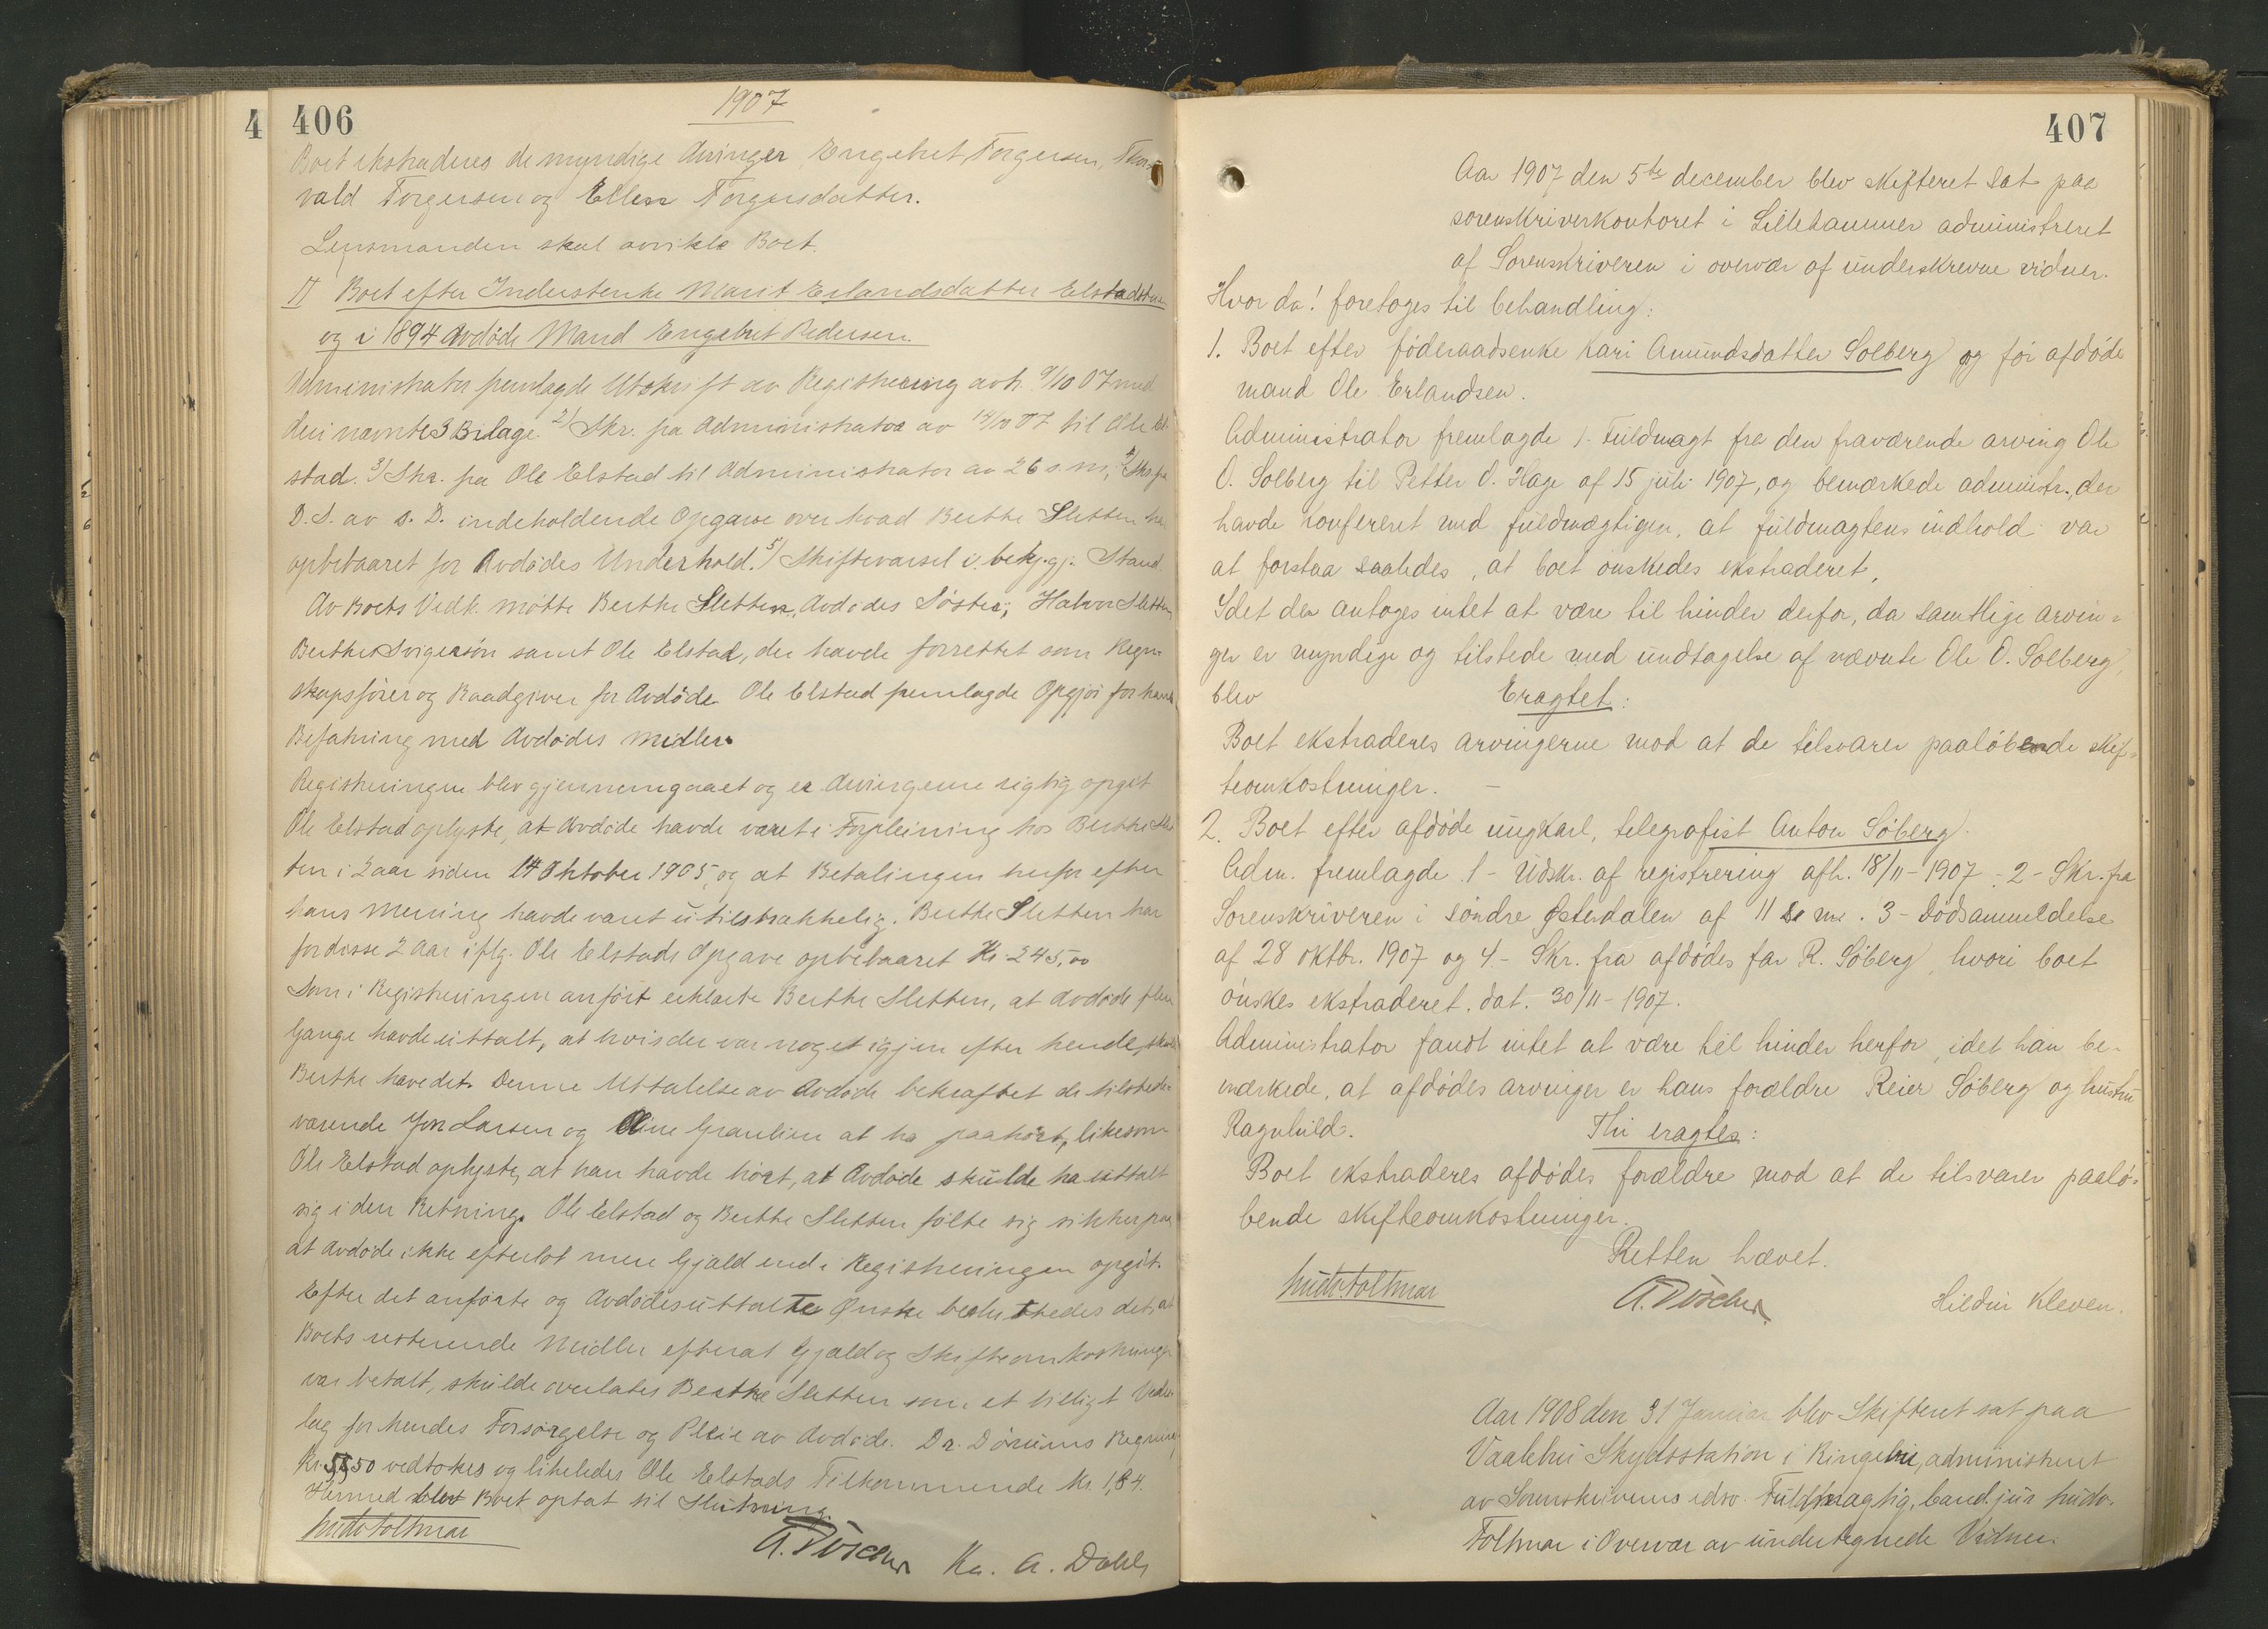 4
406
1907
Boet ekstraderes de myndige Arvinger Engebret Torgersen, Thor-
vald Torgersen og Ellen Torgersdatter.
Lensmanden skal avvikle Boet.
II Boet efter Inderstenke Marit Erlandsdatter Elstadstuen
og i 1894 avdöde Mand Engebret Pedersen.
Administrator fremlagde Utskrift av Registrering avh. 9/10 07 med
deri nævnte 3 Bilage. 2) Skr. fra Administrator av 14/10 07 til Ole El-
stad. 3) Skr. fra Ole Elstad til Administrator av 26 s.m., 4) Skr. fra
D. S. av s. D. indeholdende Opgave over hvad Berthe Sletten har
opbebaaret for Avdödes Underhold. 5) Skiftevarsel i bekj.gj. Stand.
Av Boets Vedk. mötte Berthe Sletten, Avdödes Söster, Halvor Sletten
Berthes Svigersön samt Ole Elstad, der havde forrettet som Regn-
skapsförer og Raadgiver for Avdöde. Ole Elstad fremlagde Opgjör for hans
Befatning med Avdödes Midler.
Registreringen blev gjennemgaaet og er Arvingerne rigtig opgit
Ole Elstad oplyste, at Avdöde havde været i Forpleining hos Berthe Slet-
ten i 2 aar siden 14 Oktober 1905, og at Betalingen herfor efter
hans Mening havde været utilstrækkelig. Berthe Sletten har
for disse 2 aar iflg. Ole Elstads Opgave opbebaaret Kr. 245,00
Som i Registreringen anfört erklærte Berthe Sletten, at Avdöde flere
Gange havde uttalt, at hvis der var noget igjen efter hende, skulde
Berthe have det. Denne Uttalelse av Avdöde bekræftet de tilstede-
værende Jon Larsen og Oline Granlien at ha paahört, likesom
Ole Elstad oplyste, at han havde hört, at Avdöde skulde ha uttalt
sig i den Retning. Ole Elstad og Berthe Sletten fölte sig sikker paa
at Avdöde ikke efterlot mere Gjæld end i Registreringen opgit.
Efter det anförte og Avdödes uttalte Önske besluttedes det, at
Boets resterende Midler efterat Gjæld og Skifteomkostninger
var betalt, skulde overlates Berthe Sletten som et billigt Veder-
lag for hendes Forsörgelse og Pleie av Avdöde. Dr. Dörums Regning
Kr. 50 vedtokes og likeledes Ole Elstads Tilkommende Kr. 1,84.
Hermed blev Boet optat til Slutning.
Ludv. Foltmar
A. Kn. A. Dahl
407
Aar 1907 den 5te december blev skifteret sat paa
sorenskriverkontoret i Lillehammer administreret
af Sorenskriveren i overvær af underskrevne vidner.
Hvor da! foretoges til behandling:
1. Boet efter föderaadsenke Kari Amundsdatter Solberg og för afdöde
mand Ole Erlandsen.
Administrator fremlagde 1- Fuldmagt fra den fraværende arving Ole
O. Solberg til Petter O. Hage af 15 juli 1907, og bemærkede administr., der
havde konfereret med fuldmægtigen, at fuldmagtens indhold var
at forstaa saaledes, at boet önskedes ekstraderet,
Idet der antoges intet at være til hinder derfor, da samtlige arvin-
ger er myndige og tilstede med undtagelse af nævnte Ole O. Solberg,
blev Eragtet:
Boet ekstraderes arvingerne mod at de tilsvarer paalöbende skif-
teomkostninger. –
2. Boet efter afdöde ungkarl, telegrafist Anton Söberg.
Adm. fremlagde 1- Udskr. af registrering afh. 18/11-1907. 2- Skr. fra
Sorenskriveren i söndre Österdalen af 11 s. m. 3- Dödsanmeldelse
af 28 oktbr. 1907 og 4- Skr. fra afdödes far R. Söberg, hvori boet
önskes ekstraderet. dat. 30/11-1907.
Administrator fandt intet at være til hinder herfor, idet han be-
mærkede, at afdödes arvinger er hans forældre Reier Söberg og hustru
Ragnhild. Thi eragtes:
Boet ekstraderes afdödes forældre mod at de tilsvarer paalö-
bende skifteomkostninger.
Retten hævet.
Ludv. Foltmar A. Hildur Kleven.
Aar 1908 den 31 Januar blev Skifteret sat paa
Vaalebru Skydsstation i Ringebu, administreret
av Sorenskriverens edsv. Fuldmægtig, Cand. jur Ludv.
Foltmar i Overvær av undertegnede Vidner.